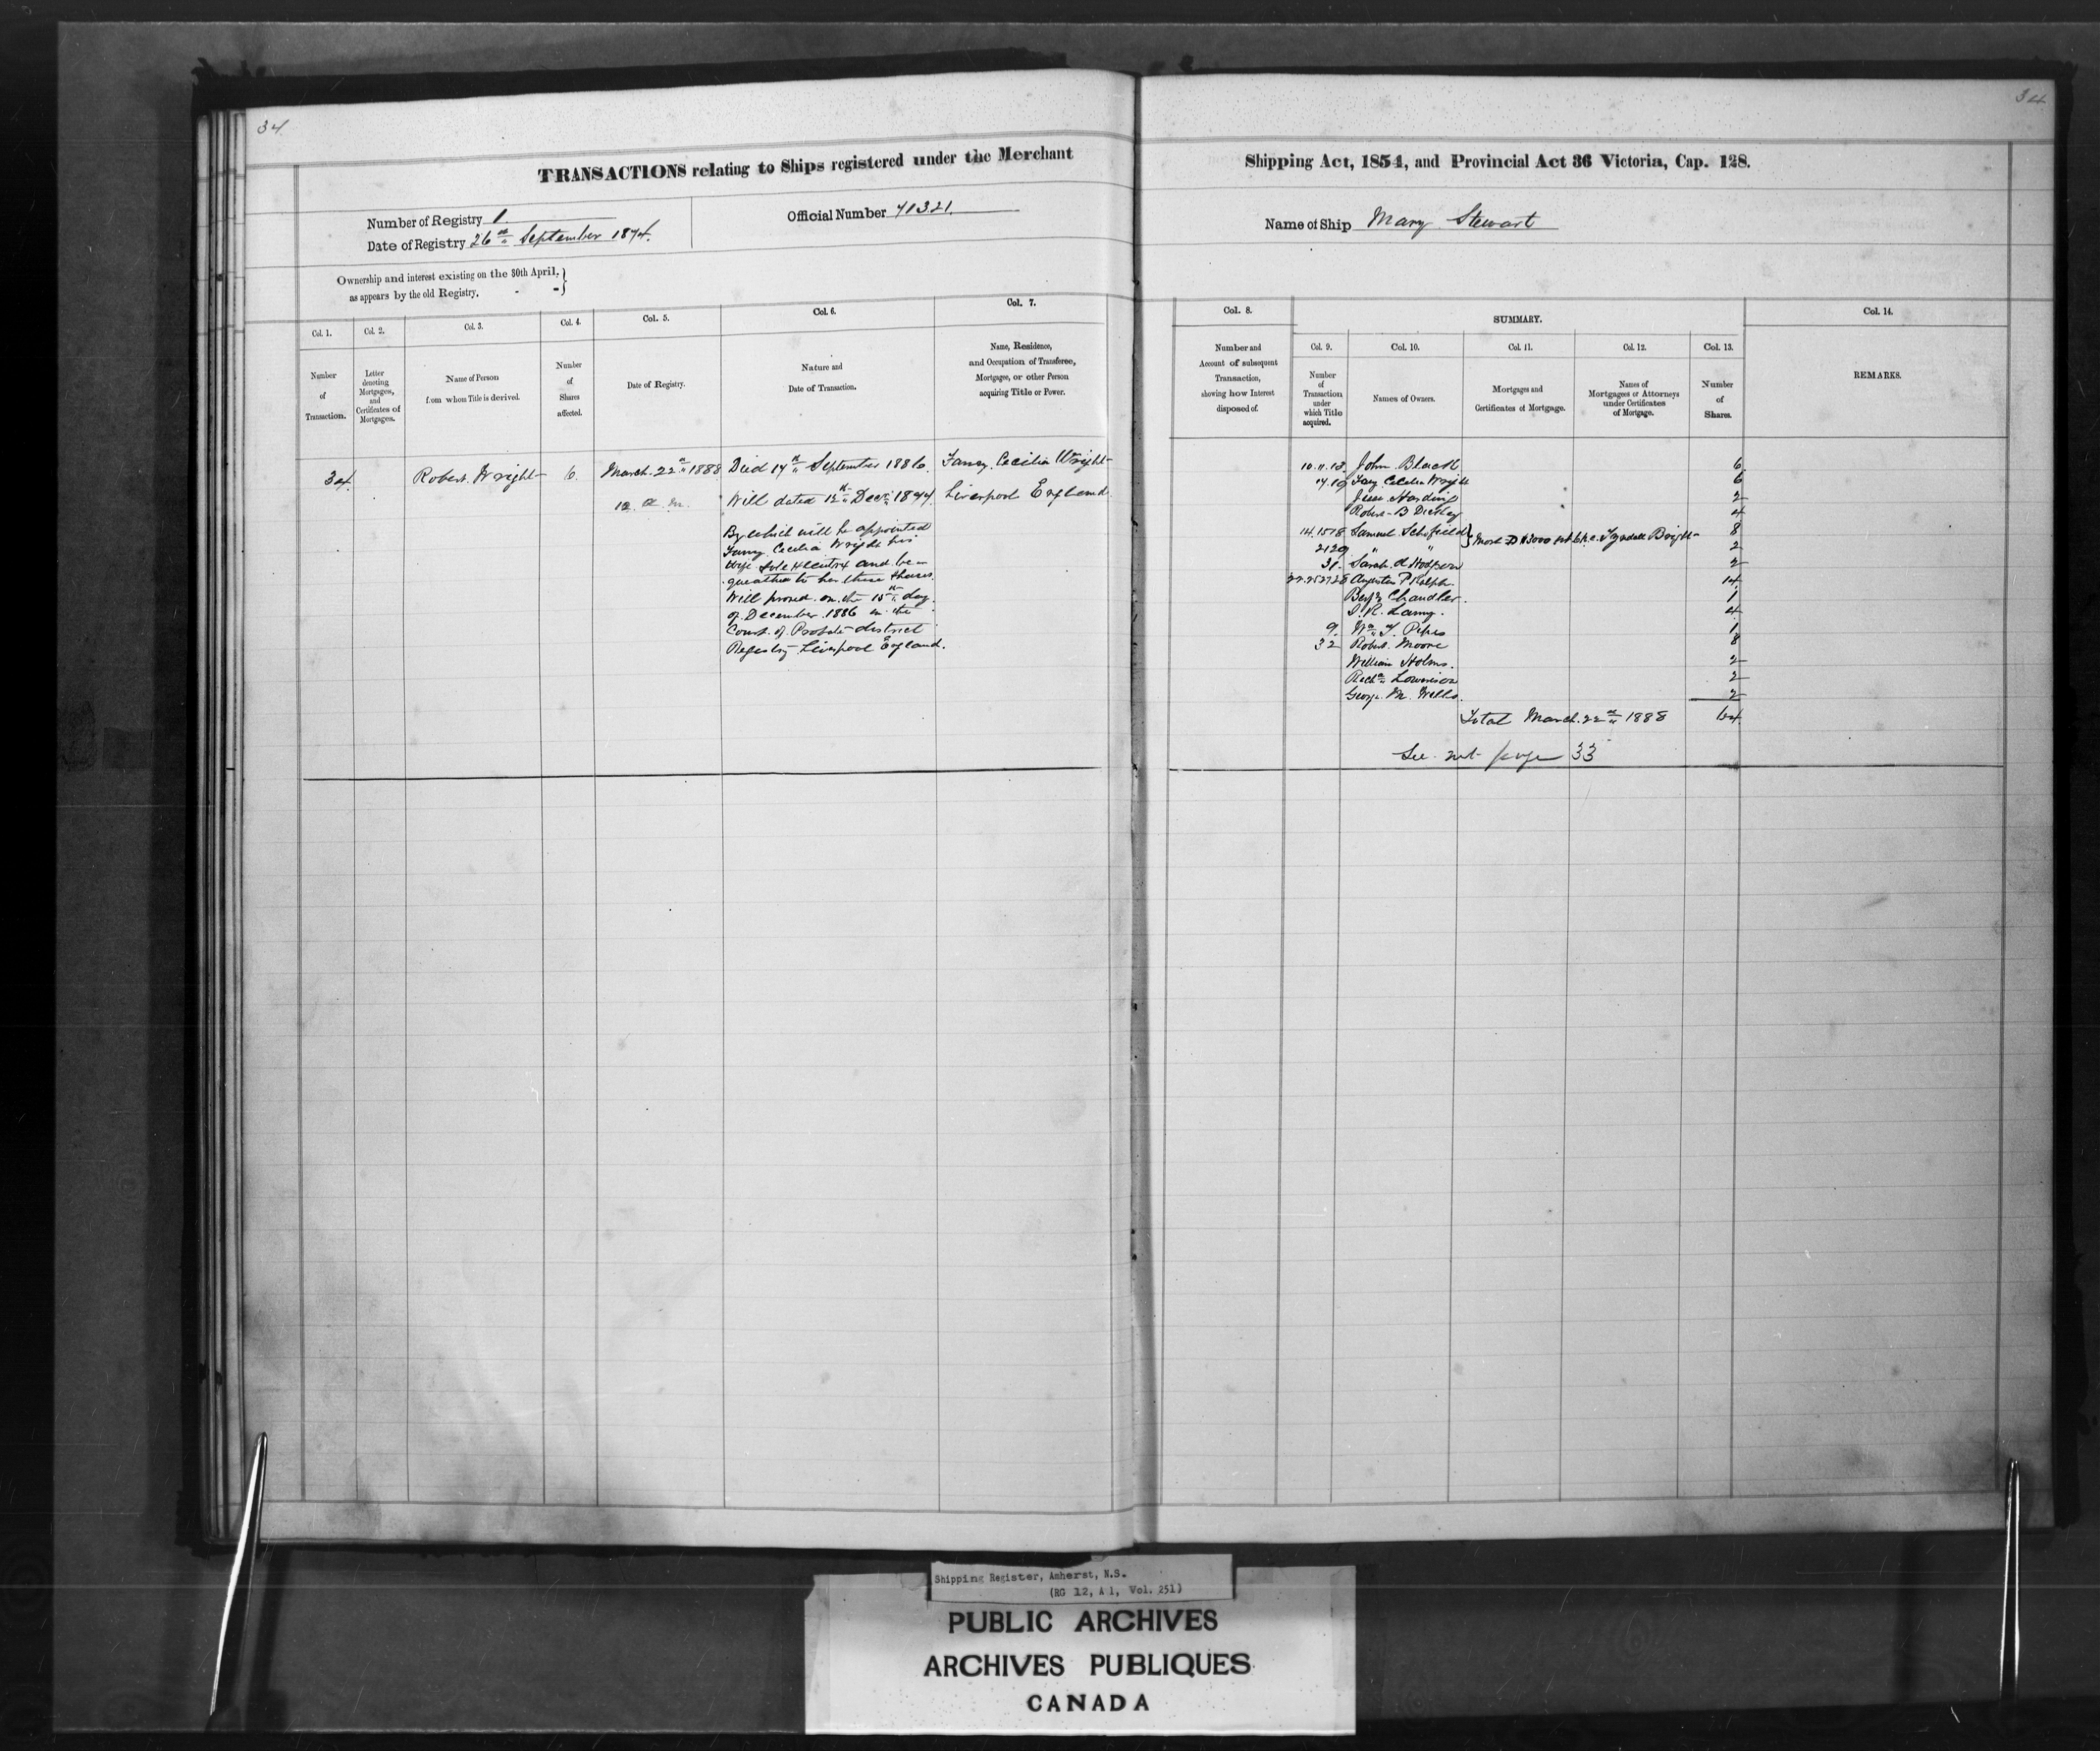 34
34
TRANSACTIONS relating to Ships registered under the Merchant
Shipping Act, 1854, and Provincial Act 36 Victoria, Cap. 128.
Number of Registry 1
Date of Registry 26th September 1874.
Official Number 71321.
Name of Ship Mary Stewart
Ownership and interest existing on the 30th April,
as appears by the old Registry.
Col. 1.
Number
of
Transaction.
Col. 2.
Letter
denoting
Mortgages,
and
Certificates of
Mortgages.
Col. 3.
Name of Person
from whom Title is derived.
Col. 4.
Number
of
Shares
affected.
Col. 5.
Date of Registry.
Col. 6.
Nature and
Date of Transaction.
Col. 7.
Name, Residence,
and Occupation of Transferee,
Mortgagee, or other Person
acquiring Title or Power.
Col. 8.
Number and
Account of subsequent
Transaction,
showing how Interest
disposed of.
SUMMARY.
Col. 9.
Number
of
Transaction
under
which Title
acquired.
Col. 10.
Names of Owners.
Col. 11.
Mortgages and
Certificates of Mortgage.
Col. 12.
Names of
Mortgagees or Attorneys
under Certificates
of Mortgage.
Col. 13.
Number
of
Shares.
Col. 14.
REMARKS.
34.
Robert Wright
6.
March 22nd 1888
12 a.m.
Died 17th September 1886.
Will dated 12th Decr 1877
By which will he appointed
Fanny Cecilia Wright his
wife sole Executrix and be-
queathed to her these shares.
Will proved on the 15th day
of December 1886 in the
Court of Probate district
Registry Liverpool England.
Fanny Cecilia Wright
Liverpool England
10.11.13. John Black 6
17.19 Fany Cecilia Wright 6
Jesse Harding 2
Robert B Dickey 4
14.15.18 Samuel Schofield Mort D $3000 Tyndall Bright 8
21 29 " " 2
31. Sarah A Hodgson 2
Augustus P Ralph 14
Benj Chandler. 1
D. R. Lamy. 4
9. Wm Y. Pipes 1
32 Robert Moore 8
William Holms. 2
Richd Lowerison 2
George M. Wells. 2
Total March 22nd 1888 64
See page 33
Shipping Register, Amherst, N.S.
(RG 12, A 1, Vol. 251)
PUBLIC ARCHIVES
ARCHIVES PUBLIQUES
CANADA